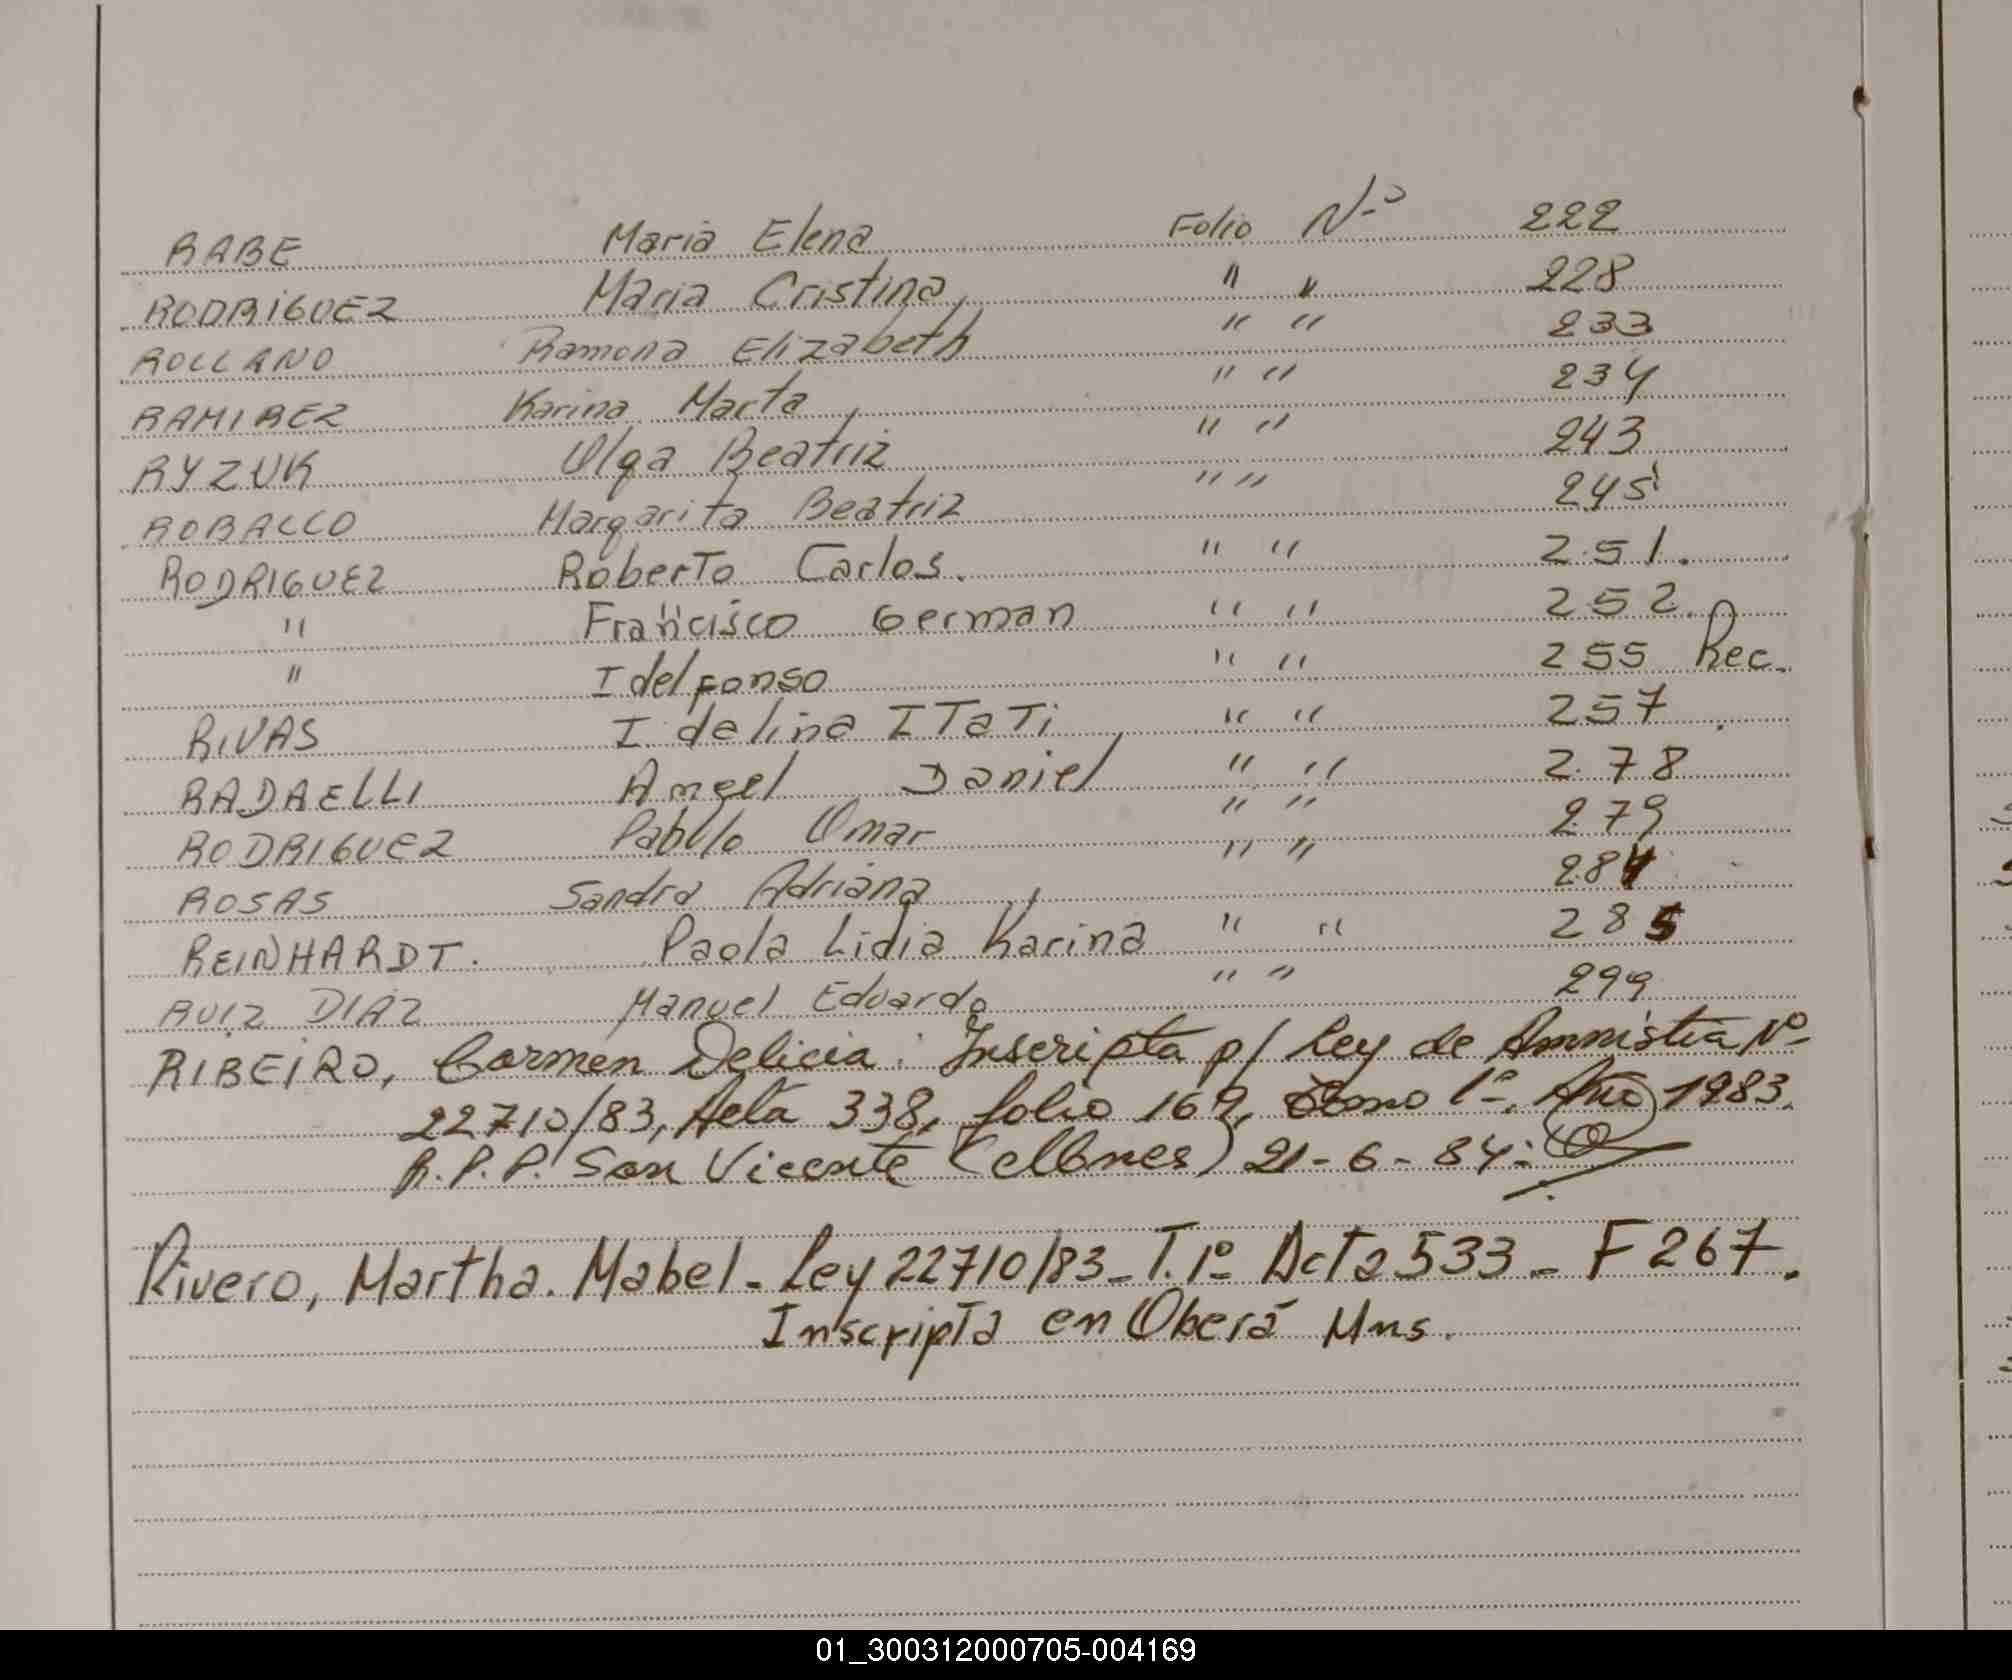 RABE Maria Elena Folio N-º 222
RODRIGUEZ Maria Cristina " " 228
ROLLANO Ramona Elizabeth " " 233
RAMIREZ Karina Marta " " 234
RYZUK Olga Beatriz " " 243
ROBALLO Margarita Beatriz " " 245
RODRIGUEZ Roberto Carlos. " " 251.
" Francisco German " " 252.
" Idelfonso " " 255 Rec.
RIVAS Idelina ITaTi " " 257.
RADAELLI Angel Daniel " " 278
RODRIGUEZ Pablo Omar " " 279
ROSAS Sandra Adriana " " 284
REINHARDT. Paola Lidia Karina " " 285
RUIZ DIAZ Manuel Eduardo " " 299
RIBEIRO, Carmen Delicia: Inscripta p/ Ley de Amnistia Nº
22710/83, Acta 338, folio 169, tomo 1º, Año 1983.
R.P.P. San Vicente (Mnes) 21-6-84:
Rivero, Martha. Mabel - Ley 22710/83 - T. 1º Acta 533 - F 267.
InscripTa en Oberá Mns.
01_300312000705-004169